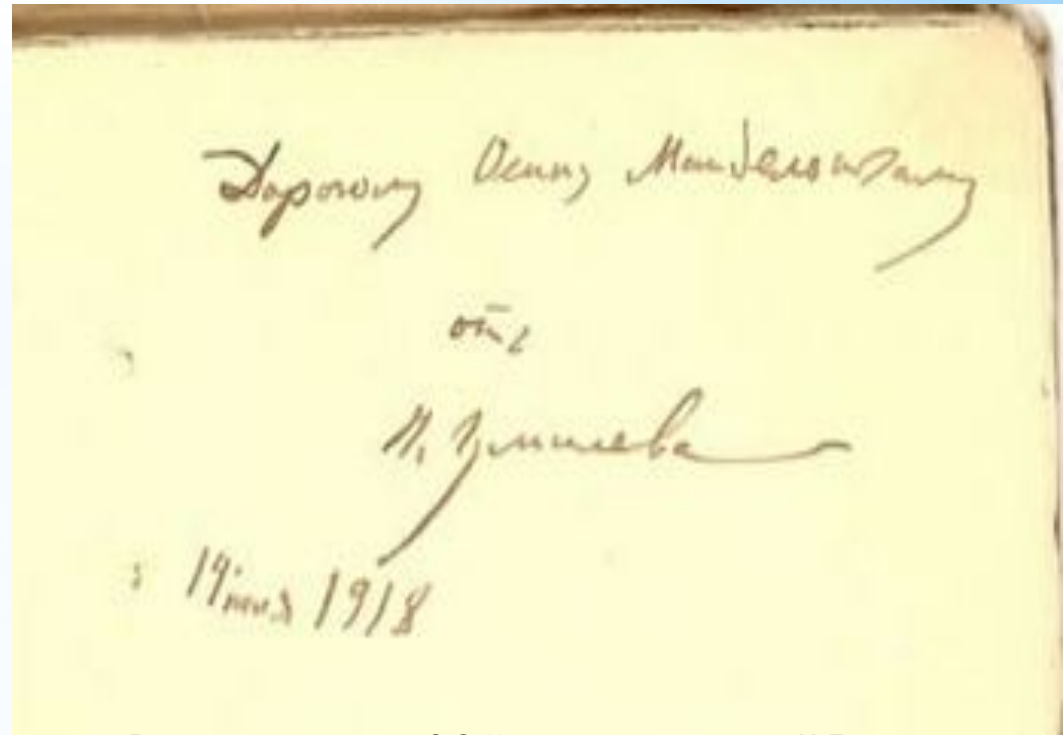 Дорогому Осипу Мандельштаму
отъ
Н. Гумилева
1918